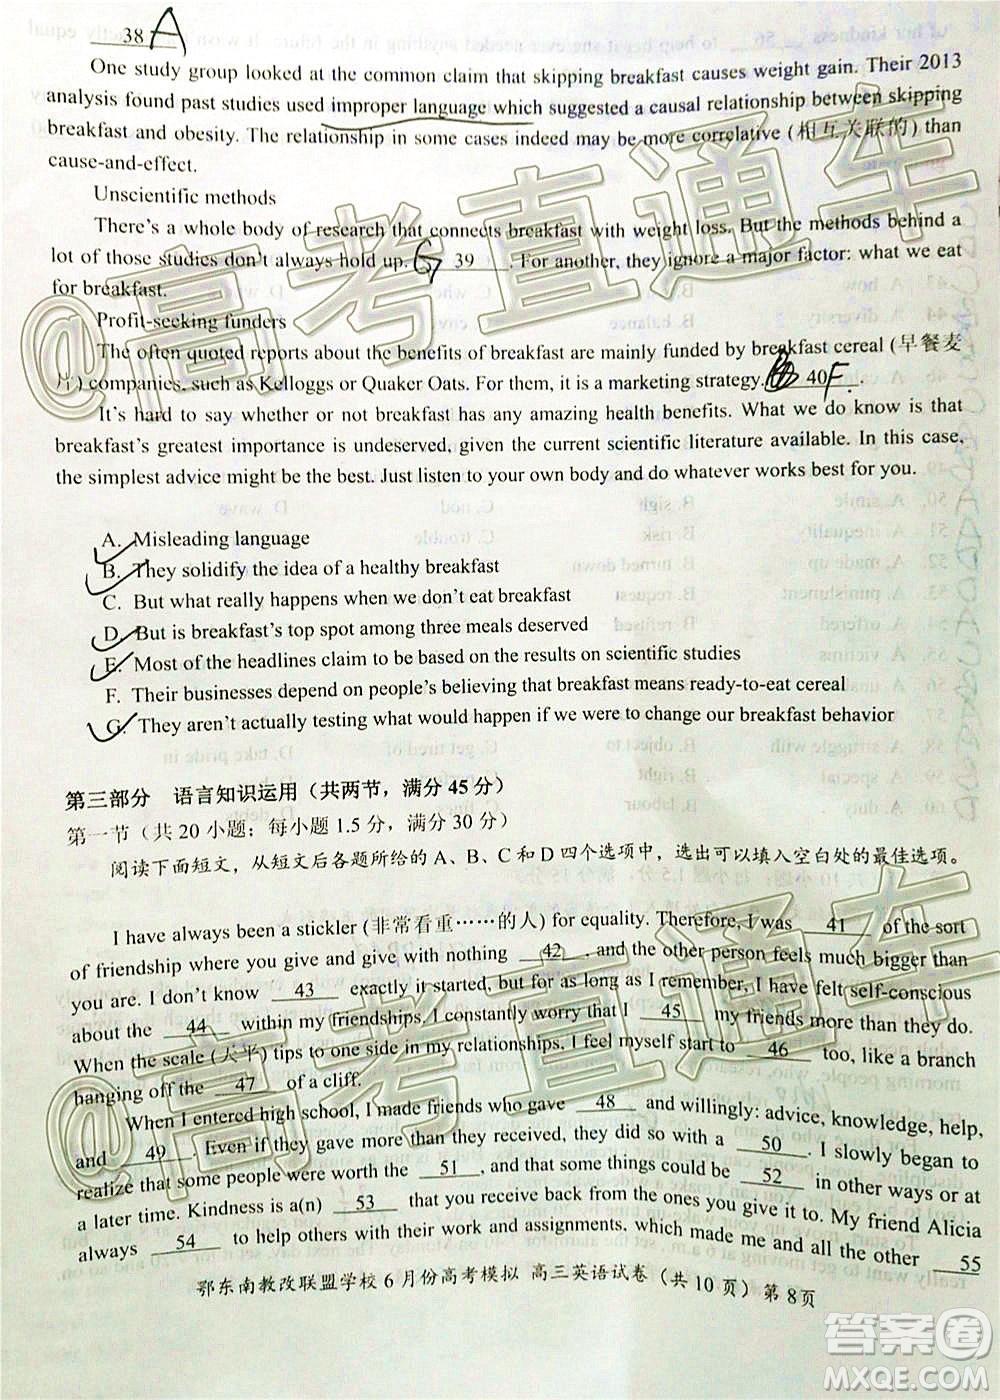 38 A
One study group looked at the common claim that skipping breakfast causes weight gain. Their 2013
analysis found past studies used improper language which suggested a causal relationship between skipping
breakfast and obesity. The relationship in some cases indeed may be more correlative (相互关联的) than
cause-and-effect.
Unscientific methods
There's a whole body of research that connects breakfast with weight loss. But the methods behind a
lot of those studies don't always hold up. G 39 . For another, they ignore a major factor: what we eat
for breakfast.
Profit-seeking funders
The often quoted reports about the benefits of breakfast are mainly funded by breakfast cereal (早餐麦
片) companies, such as Kelloggs or Quaker Oats. For them, it is a marketing strategy. 40 F .
It's hard to say whether or not breakfast has any amazing health benefits. What we do know is that
breakfast's greatest importance is undeserved, given the current scientific literature available. In this case,
the simplest advice might be the best. Just listen to your own body and do whatever works best for you.
A. Misleading language
B. They solidify the idea of a healthy breakfast
C. But what really happens when we don't eat breakfast
D. But is breakfast's top spot among three meals deserved
E. Most of the headlines claim to be based on the results on scientific studies
F. Their businesses depend on people's believing that breakfast means ready-to-eat cereal
G. They aren't actually testing what would happen if we were to change our breakfast behavior
第三部分 语言知识运用（共两节，满分 45 分）
第一节（共 20 小题；每小题 1.5 分，满分 30 分）
阅读下面短文，从短文后各题所给的 A、B、C 和 D 四个选项中，选出可以填入空白处的最佳选项。
I have always been a stickler (非常看重……的人) for equality. Therefore, I was 41 of the sort
of friendship where you give and give with nothing 42 , and the other person feels much bigger than
you are. I don't know 43 exactly it started, but for as long as I can remember, I have felt self-conscious
about the 44 within my friendships. I constantly worry that I 45 my friends more than they do.
When the scale (天平) tips to one side in my relationships, I feel myself start to 46 too, like a branch
hanging off the 47 of a cliff.
When I entered high school, I made friends who gave 48 and willingly: advice, knowledge, help,
and 49 . Even if they gave more than they received, they did so with a 50 . I slowly began to
realize that some people were worth the 51 , and that some things could be 52 in other ways or at
a later time. Kindness is a(n) 53 that you receive back from the ones you give it to. My friend Alicia
always 54 to help others with their work and assignments, which made me and all the other 55
鄂东南教改联盟学校 6 月份高考模拟 高三英语试卷（共 10 页）第 8页
@高考直通车
@高考直通车
答案圈
MXQE.COM